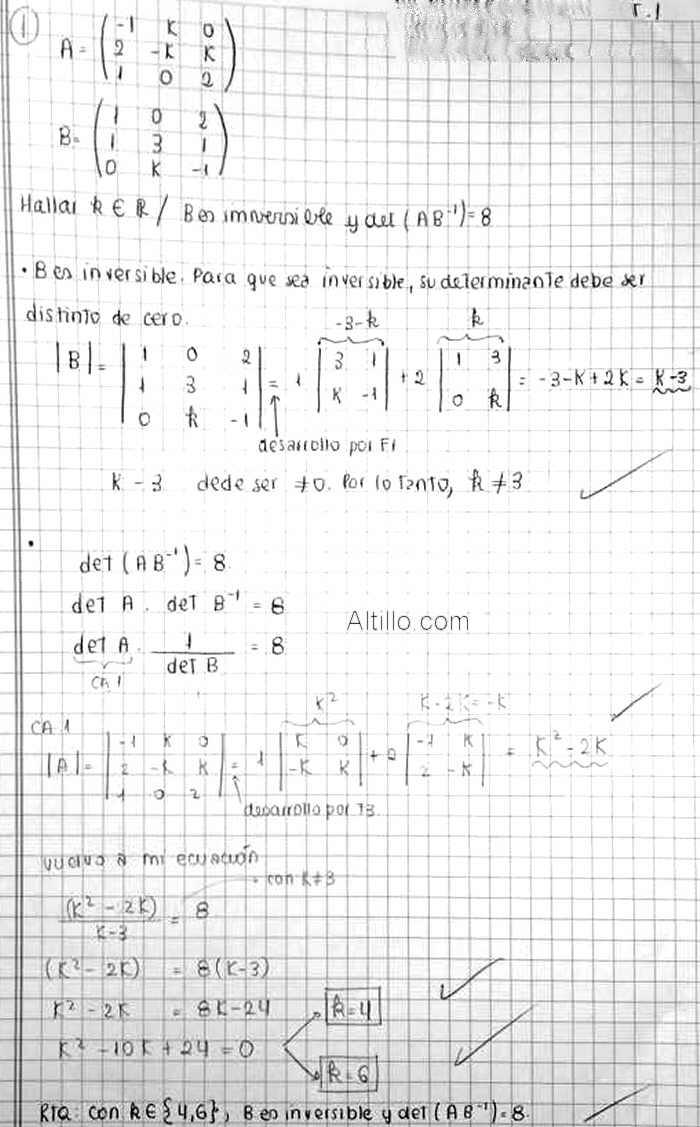 T.1
1
A = ( -1 K 0
2 -K K
1 0 2 )
B = ( 1 0 2
1 3 1
0 K -1 )
Hallar k ∈ R / B es imversible y det (AB⁻¹)=8
• B es inversible. Para que sea inversible, su determinante debe ser
distinto de cero.
-3-k k
|B| = | 1 0 2 | = 1 | 3 1 | + 2 | 1 3 | = -3-K+2K = K-3
| 1 3 1 | | K -1 | | 0 k |
| 0 k -1 |
desarrollo por F1
K - 3 dede ser ≠0. Por lo tanto, k ≠ 3
•
det (AB⁻¹) = 8
det A . det B⁻¹ = 8
det A . 1 / det B = 8
CA 1
Altillo.com
CA 1
K² K-2K=-K
|A| = | -1 K 0 | = 1 | K 0 | + 2 | -1 K | = K² - 2K
| 2 -K K | | -K K | | 2 -K |
| 1 0 2 |
desarrollo por F3.
vuelvo a mi ecuación
con K≠3
(K² - 2K) / K-3 = 8
(K² - 2K) = 8(K-3)
K² - 2K = 8K-24
k=4
K² - 10K + 24 = 0
k=6
Rta: con k ∈ {4,6}, B es inversible y det (AB⁻¹)=8.